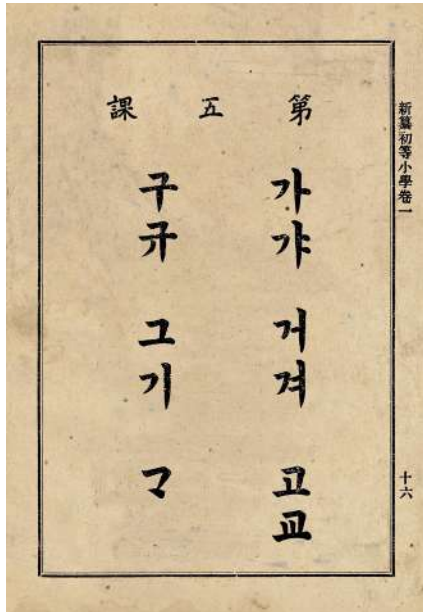 新纂初等小學卷一
十六
第五課
가갸 거겨 고교
구규 그기 ᄀᆞ